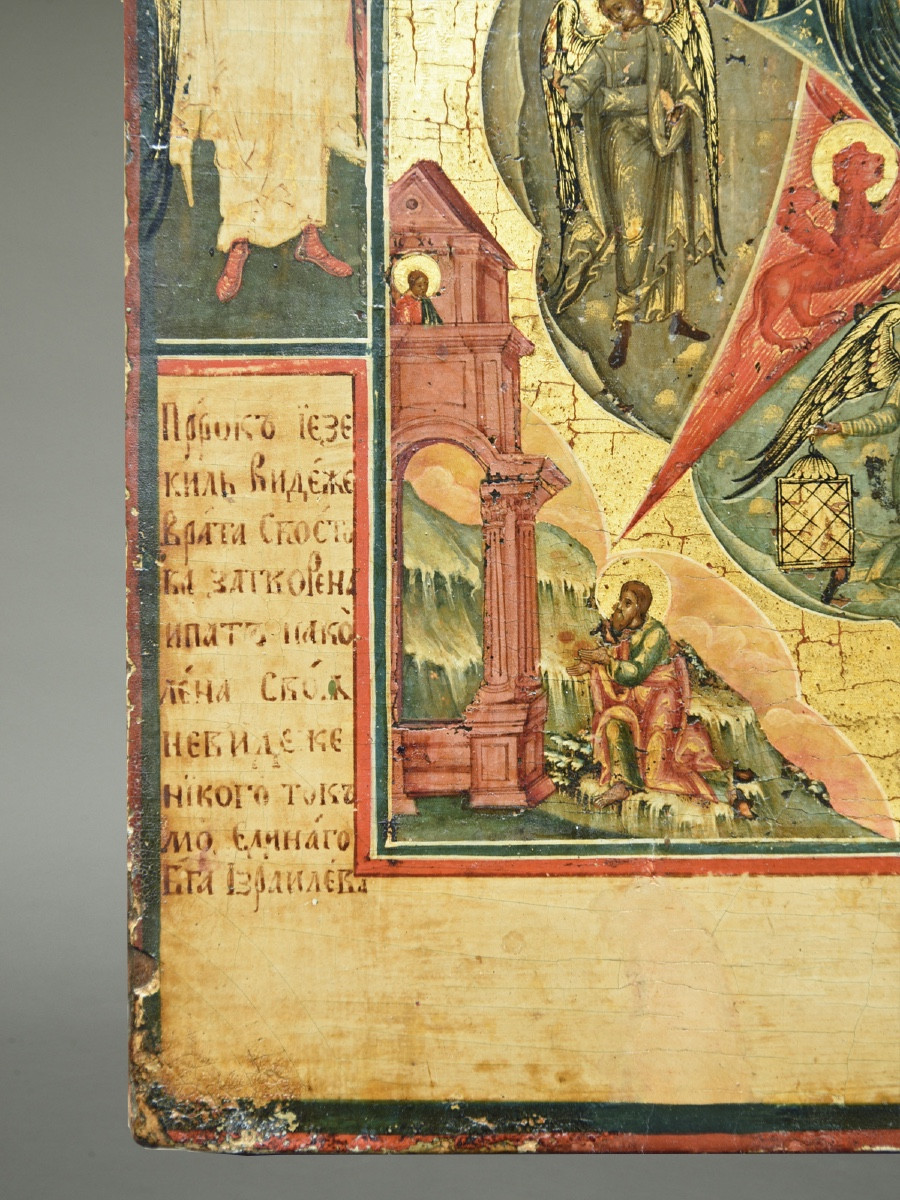 Пррокъ їезе
киль видѐже
врата Скосто
ка заткорена
ипатъ нако
лена Сво́ѧ
невиде ке
нікого токъ
мо. Едина́го
Бга Ізраилева